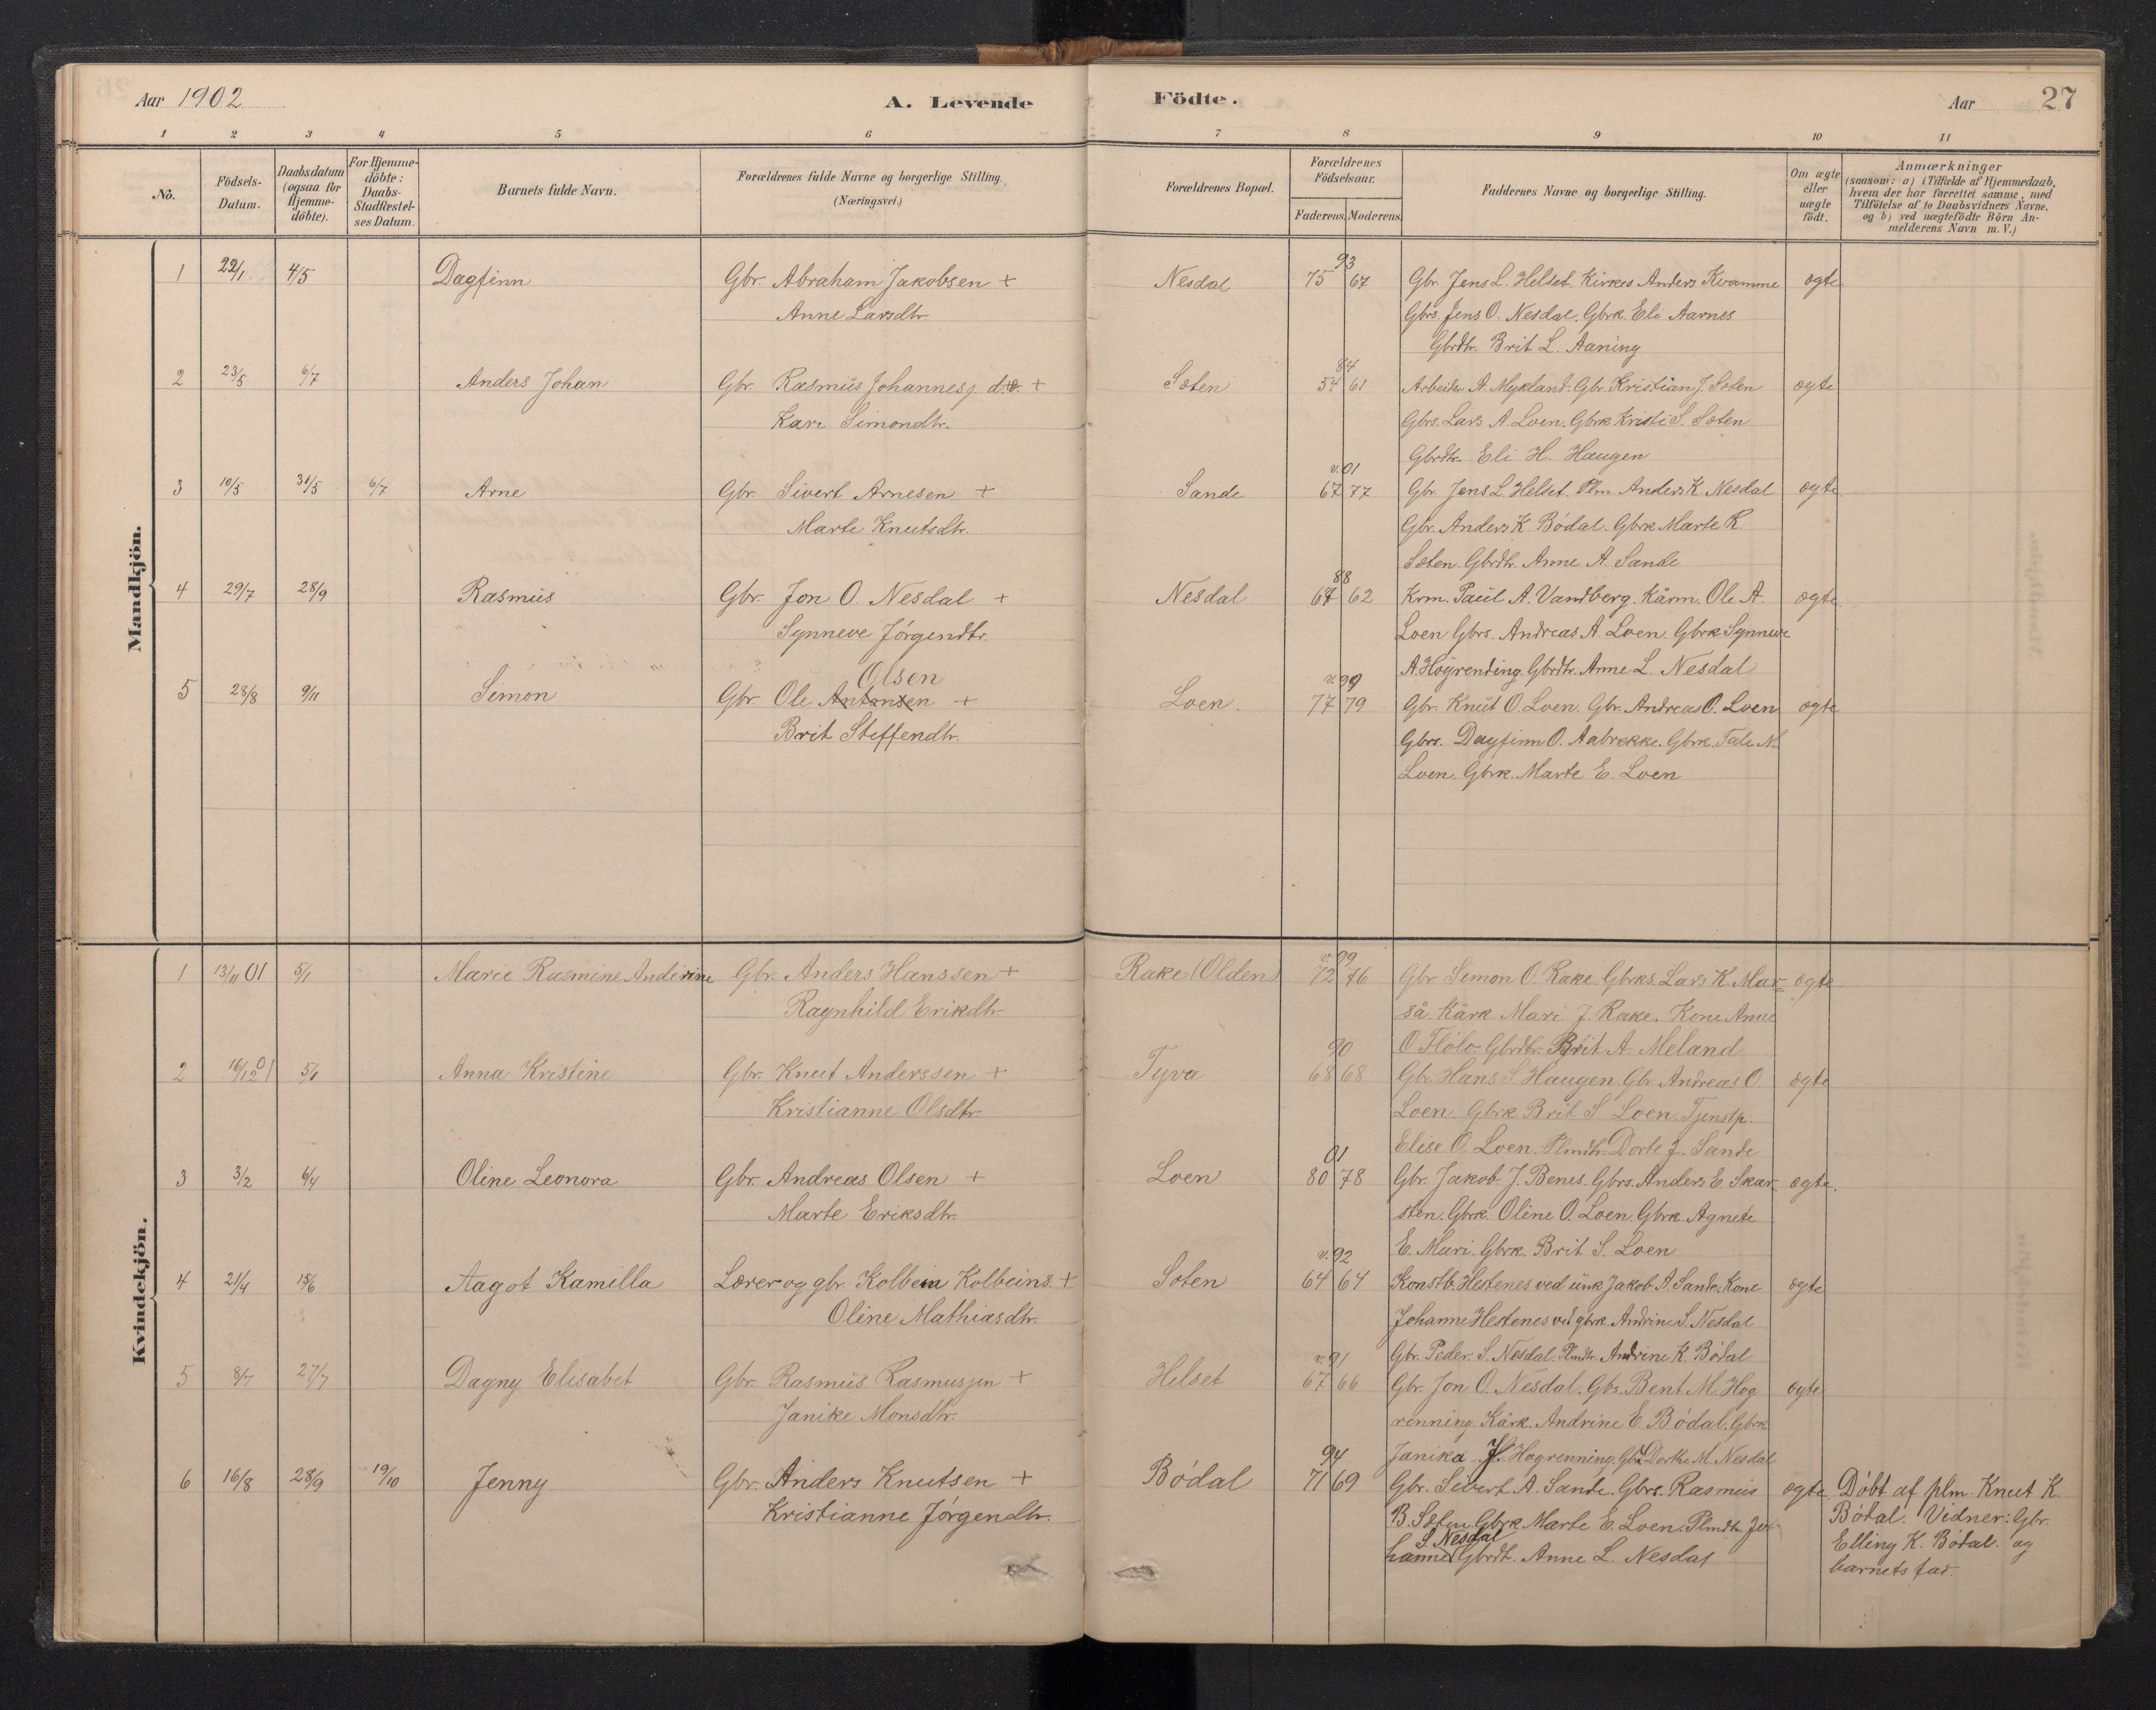 Aar 1902
A. Levende Födte.
Aar 27
1 2 3 4 5 6 7 8 9 10 11
No.
Födsels-Datum.
Daabsdatum (ogsaa for Hjemme-döbte).
For Hjemme-döbte: Daabs-Stadfæstel-ses Datum.
Barnets fulde Navn.
Forældrenes fulde Navne og borgerlige Stilling.
(Næringsvei.)
Forældrenes Bopæl.
Forældrenes Födselsaar.
Faderens. Moderens.
Faddernes Navne og borgerlige Stilling.
Om ægte eller uægte födt.
Anmærkninger
(saasom: a) i Tilfælde af Hjemmedaab,
hvem der har forrettet samme, med
Tilföielse af to Daabsvidners Navne,
og b) ved uægtefödte Börn An-
melderens Navn m. V.)
Mandkjön.
93
1 22/1 4/5 Dagfinn Gbr. Abraham Jakobsen + Nesdal 75 67 Gbr. Jens L. Helset. Kirkes Anders Kvamme ægte
Anne Larsdtr. Gbrs. Jens O. Nesdal. Gbrk. Eli Aarnes
Gbrdtr. Brit L. Aaning
84
2 23/5 6/7 Anders Johan Gbr. Rasmus Johannesj. d.e. + Sæten 54 61 Arbeider A. Mykland. Gbr. Kristian J. Sæten ægte
Kari Simondtr. Gbrs. Lars A. Loen. Gbrk Kristi S. Sæten
Gbrdtr. Eli H. Haugen
v. 01
3 10/5 31/5 6/7 Arne Gbr. Sivert Arnesen + Sande 67 77 Gbr. Jens L Helset. Plm. Anders K. Nesdal ægte
Marte Knutsdtr. Gbr. Anders K Bödal. Gbrk Marte R.
Sæten. Gbrdtr. Anne A. Sande
88
4 29/7 28/9 Rasmus Gbr. Jon O. Nesdal + Nesdal 67 62 Krm. Paul A. Vandberg. Kårm. Ole A. ægte.
Synneve Jörgendtr. Loen Gbrs. Andreas A. Loen. Gbrk Synneve
Olsen A. Hogrending. Gbrdtr. Anne L. Nesdal
v. 99
5 28/8 9/11 Simon Gbr. Ole Antonsen + Loen. 77 79 Gbr. Knut O. Loen. Gbr. Andreas O. Loen ægte
Brit Steffendtr. Gbrs. Dagfinn O. Aabrekke. Gbrk. Tale N.
Loen. Gbrk. Marte E. Loen
Kvindekjön.
v. 99
1 13/11 01 5/1 Marie Rasmine Anderine Gbr. Anders Hanssen + Rake (Olden) 72 76 Gbr Simon O. Rake. Gbrks. Lars K. Mar- ægte.
Ragnhild Erikdtr. så. Kårk. Mari J. Rake. Kone Anne
90 O Flölo. Gbrdtr. Brit A. Meland
2 16/12 01 5/1 Anna Kristine Gbr. Knut Anderssen + Tyva 68 68 Gbr. Hans S. Haugen. Gbr. Andreas O. ægte
Kristianne Olsdtr. Loen. Gbrk Brit S. Loen. Tjenstp.
01 Elise O. Loen. Plmdtr. Dorte J. Sande
3 3/2 6/4 Oline Leonora Gbr. Andreas Olsen + Loen 80 78 Gbr. Jakob J. Benes. Gbrs. Anders E. Skar- ægte.
Marte Eriksdtr. sten. Gbrk. Oline O. Loen. Gbrk. Agnete
v. 92 E. Muri. Gbrk. Brit S. Loen
4 21/4 15/6 Aagot Kamilla Lærer og gbr Kolbein Kolbeins. + Sæten 64 64 Konstb. Hestenes ved unk. Jakob A. Sande. Kone ægte
Oline Mathiasdtr. Johanne Hestenes ved gbrk. Andrine S. Nesdal
v. 91 Gbr. Peder. S. Nesdal. Plmdtr. Andrine K. Bödal
5 8/7 27/7 Dagny Elisabet Gbr. Rasmus Rasmusjen + Helset 67 66 Gbr. Jon O. Nesdal. Gbs. Bent M. Hog ægte
Janike Monsdtr. renning. Kårk. Andrine E Bödal. Gbrk
94 Janika Hogrenning. Dorthe M. Nesdal
6 16/8 28/9 19/10 Jenny Gbr. Anders Knutsen + Bödal 71 69 Gbr. Sivert A. Sande. Gbrs. Rasmus ægte. Döbt af plm. Knut K.
Kristianne Jörgendtr. B. Sæten. Gbrk Marte E. Loen. Plmdtr. Jo- Bödal. Vidner: Gbr.
S. Nesdal Elling K. Bödal. og
hanne Gbrdt. Anne L. Nesdal barnets far.